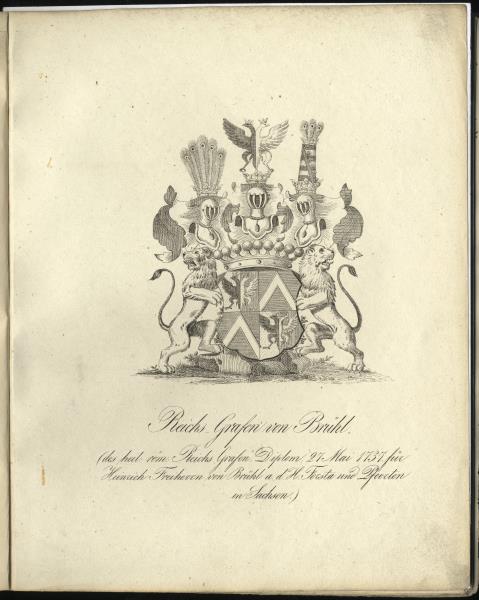 Reichs Grafen von Brühl.
(des heil. röm. Reichs Grafen Diplom 27. Mai 1737 für
Heinrich Freiherrn von Brühl a. d. H. Forsta und Pfoerten
in Sachsen)